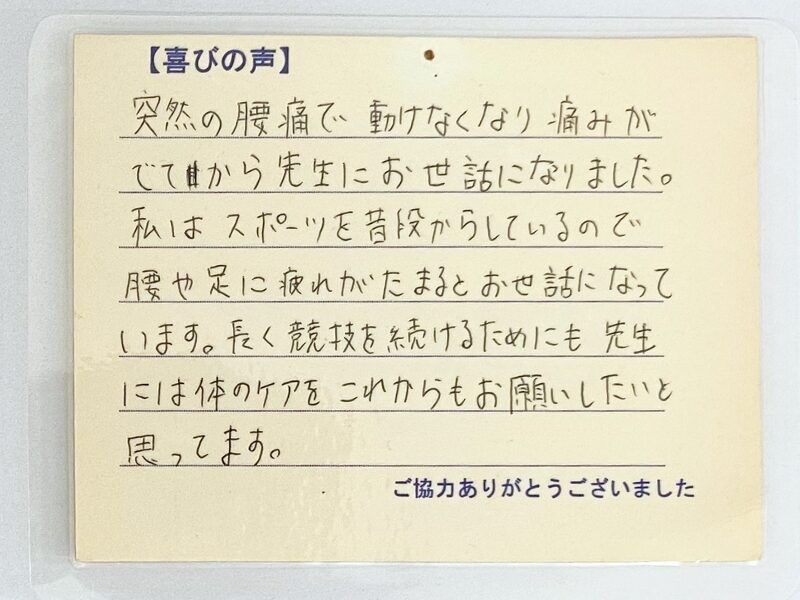 【喜びの声】
突然の腰痛で動けなくなり痛みが
でてから先生にお世話になりました。
私はスポーツを昔段からしているので
腰や足に疲れがたまるとお世話になって
います。長く競技を続けるためにも先生
には体のケアをこれからもお願いしたいと
思ってます。
ご協力ありがとうございました